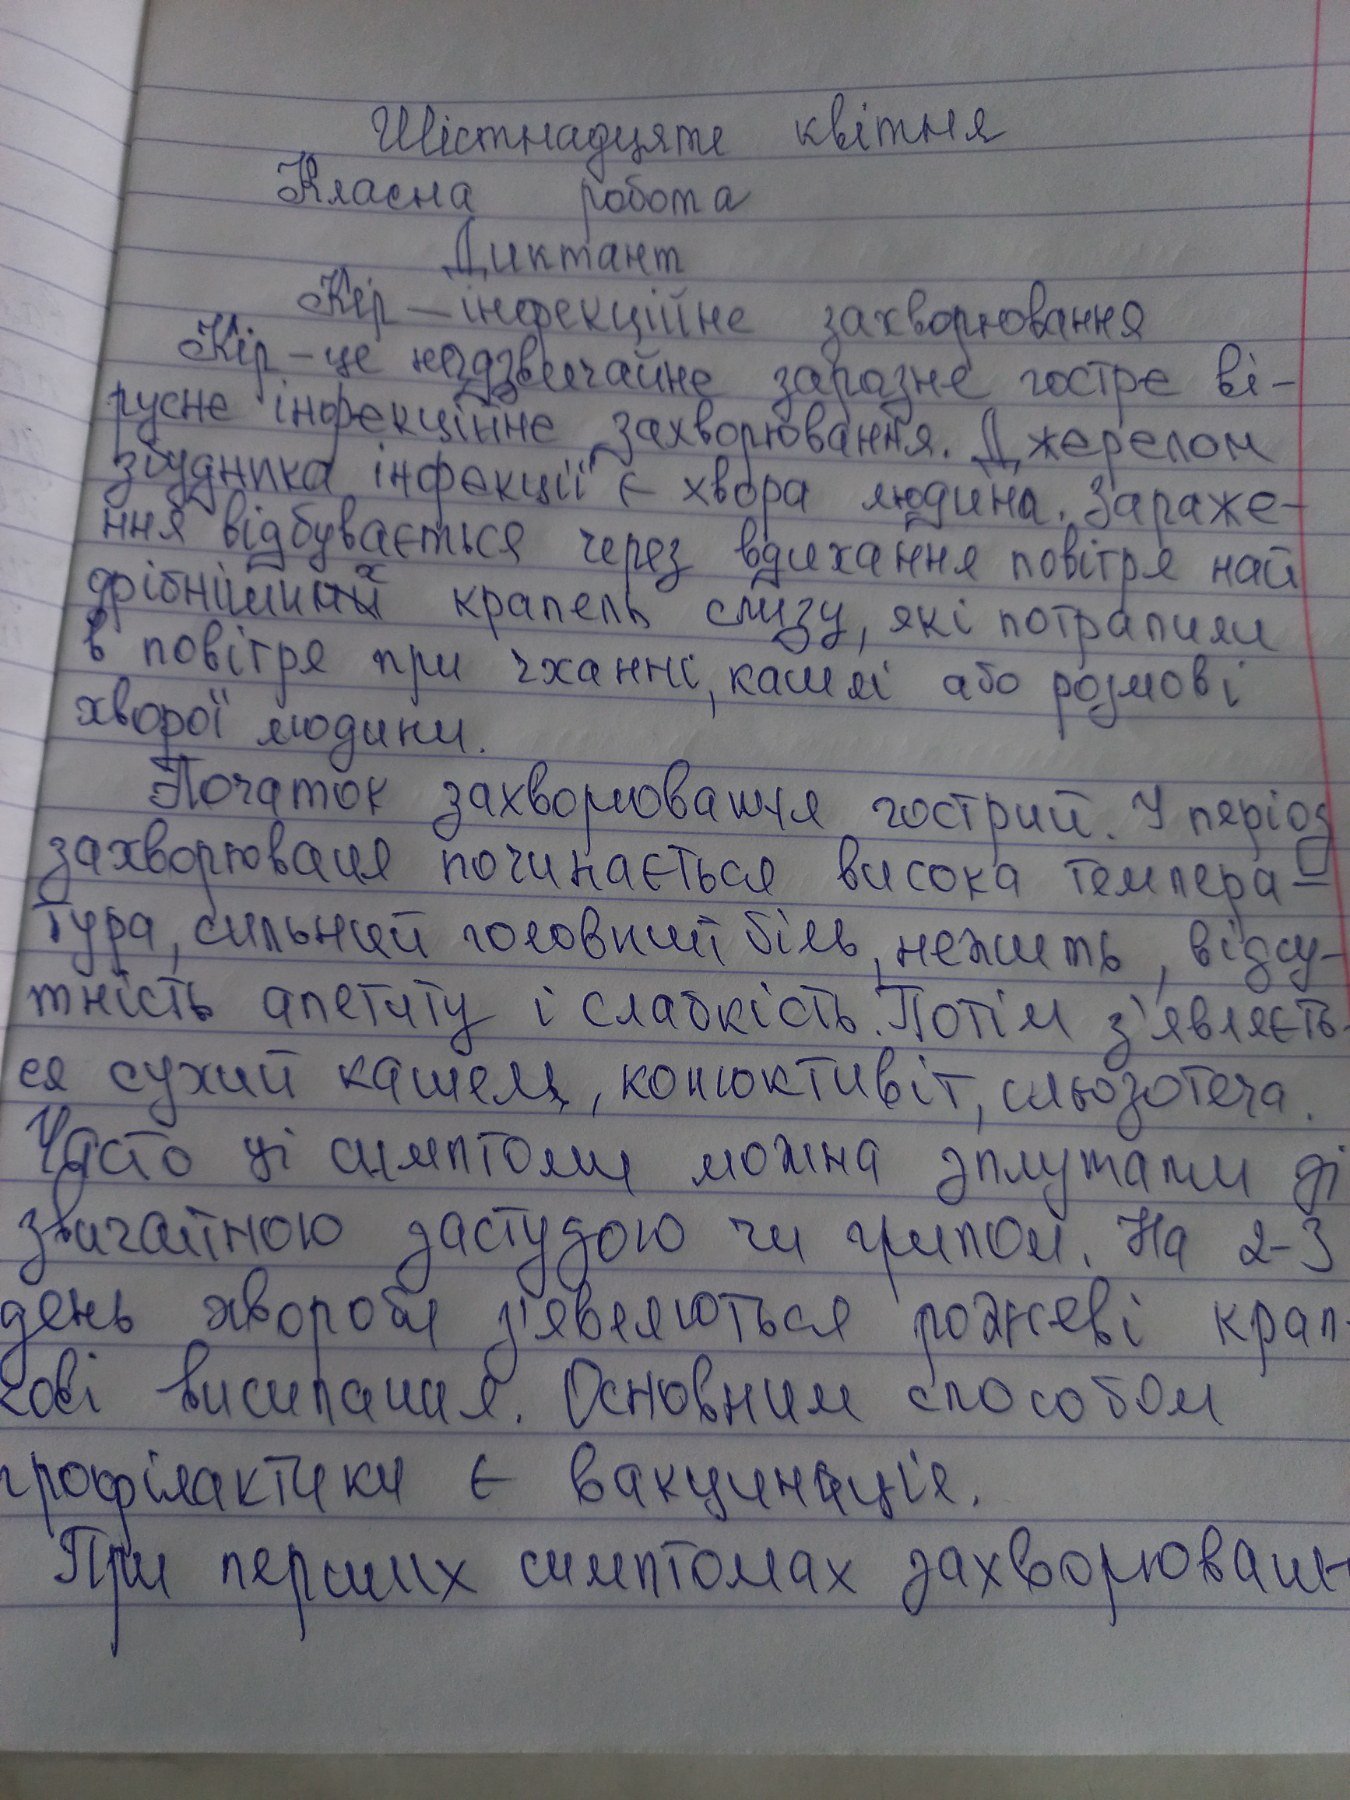 Шістнадцяте квітня
Класна робота
Диктант
Кір – інфекційне захворювання
Кір – це надзвичайне заразне гостре ві-
русне інфекційне захворювання. Джерелом
збудника інфекції є хвора людина. Зараже-
ння відбувається через вдихання повітря най
дрібніших крапель слизу, які потрапили
в повітря при чханні, кашлі або розмові
хворої людини.
Початок захворювання гострий. У період
захворювання починається висока темпера-
тура, сильний головний біль, нежить, відсу-
тність апетиту і слабкість. Потім з'являєть-
ся сухий кашель, конюктивіт, сльозотеча.
Часто ці симптоми можна сплутати зі
звичайною застудою чи грипом. На 2-3
день хвороби з'являються рожеві крап-
кові висипання. Основним способом
профілактики є вакцинація.
При перших симптомах захворюван-